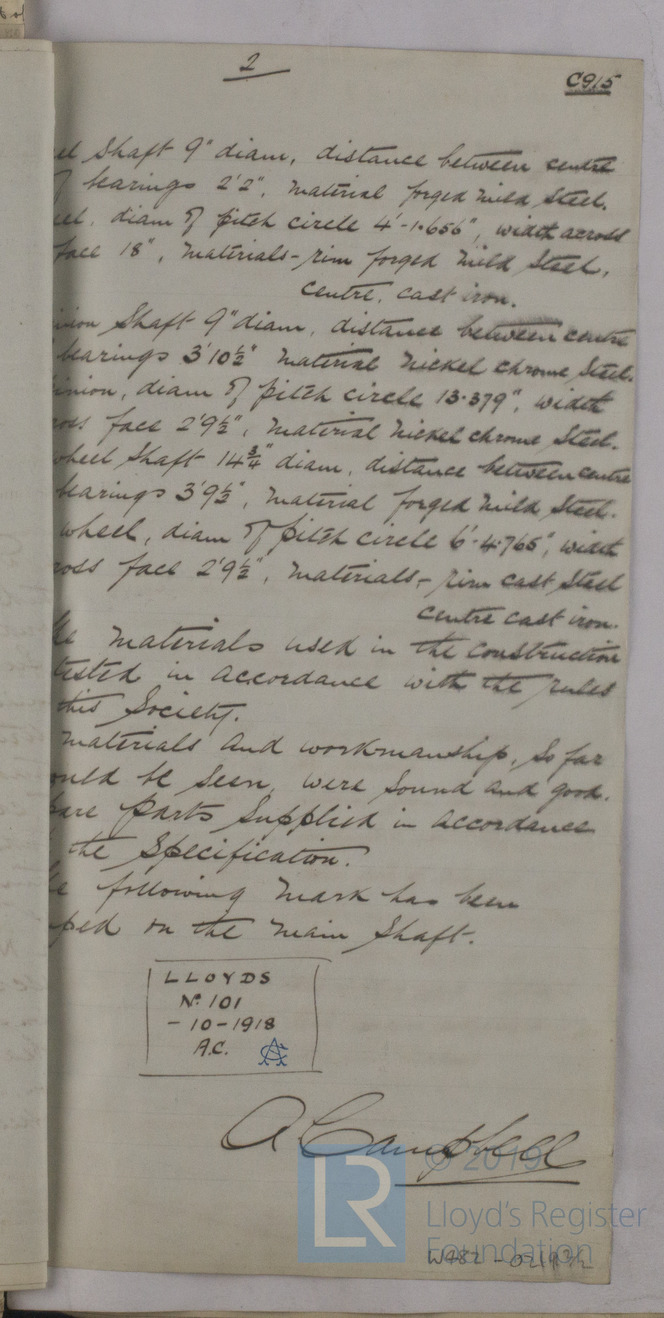 2
C915
el Shaft 9" diam, distance between centre
f bearings 2'2", material forged mild Steel.
eel, diam of pitch circle 4'-1.656", width across
face 18", materials - rim forged mild Steel,
centre, cast iron.
inion Shaft 9" diam, distance between centre
bearings 3'10½" material Nickel chrome Steel.
inion, diam of pitch circle 13.379", width
ross face 2'9½", material Nickel chrome Steel.
wheel Shaft 14¾" diam, distance between centre
bearings 3'9½", material forged mild Steel.
wheel, diam of pitch circle 6'-4.765", width
ross face 2'9½", materials - rim cast Steel
centre cast iron.
he materials used in the construction
tested in accordance with the rules
this Society.
materials and workmanship, so far
ould be seen, were sound and good.
pare parts supplied in accordance
the Specification.
he following mark has been
ped on the main Shaft.
LLOYDS
No. 101
- 10 - 1918
A.C.
A Campbell
© 2019
LR
Lloyd's Register
Foundation
W482 -